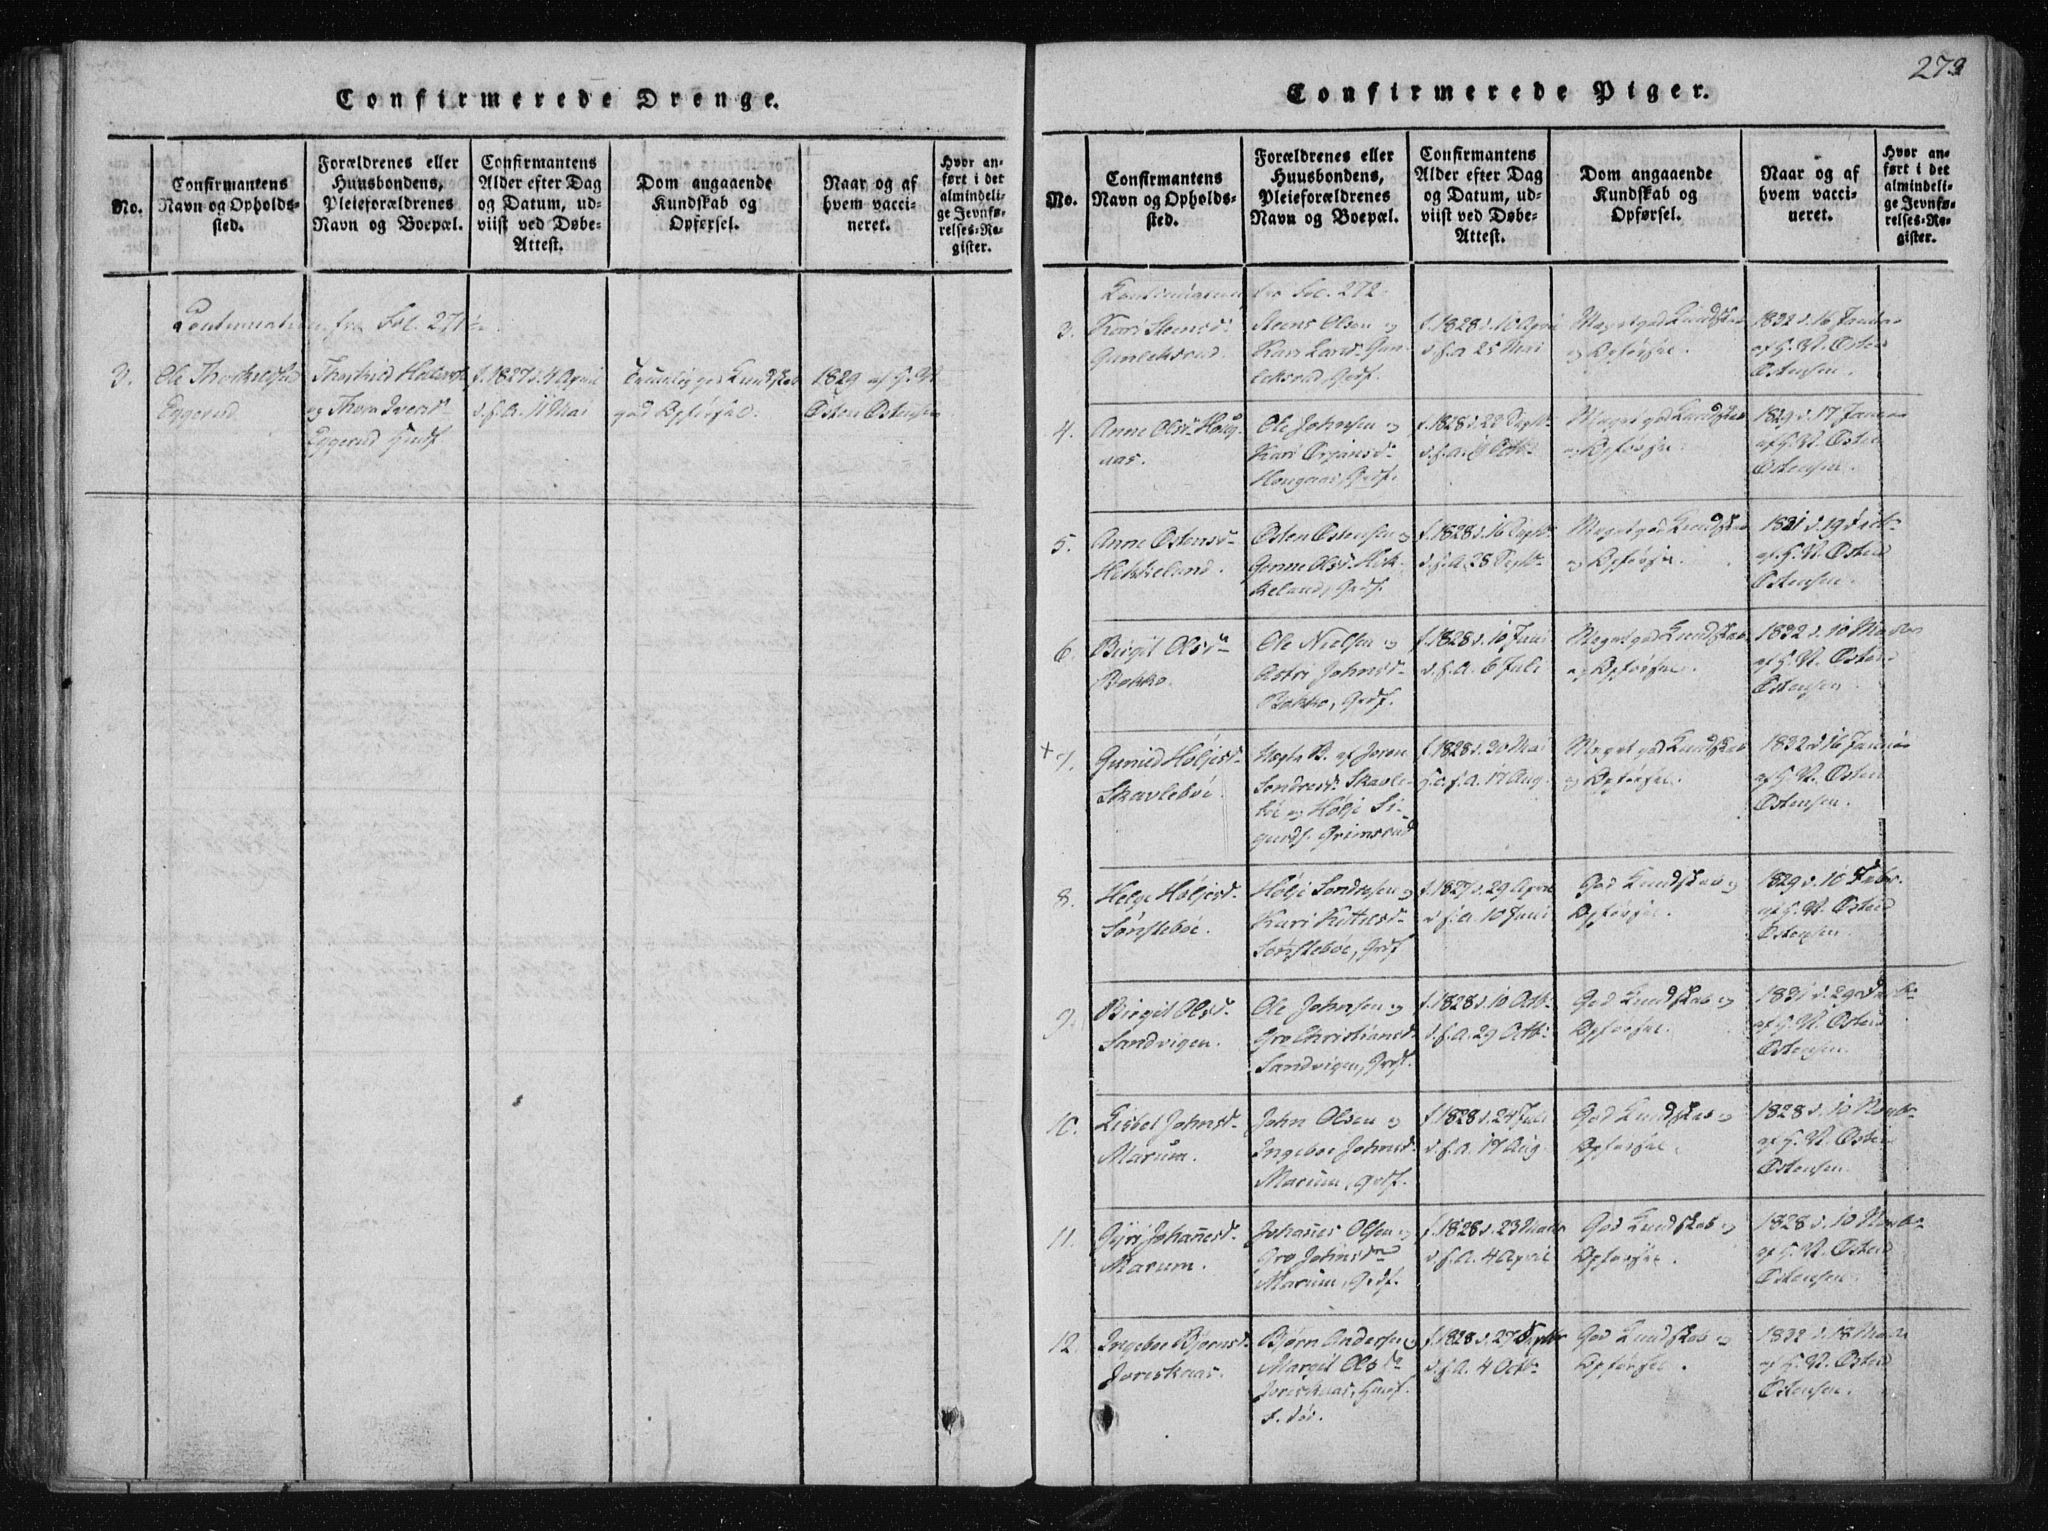 Confirmerede Drenge.
No.
Confirmantens
Navn og Opholds-
sted.
Forældrenes eller
Huusbondens,
Pleieforældrenes
Navn og Boepæl.
Confirmantens
Alder efter Dag
og Datum, ud-
viist ved Døbe-
Attest.
Dom angaaende
Kundskab og
Opførsel.
Naar og af
hvem vacci-
neret.
Hvor an-
ført i det
almindeli-
ge Jevnfø-
relses-Re-
gister.
fra Fol. 271
3.
Ole
Eggerud
Eggerud
f. 1827 d. 4 April
d. s. A. 11 Mai
god Kundskab
god Opførsel.
1829 af
Østen Østensen
273
Confirmerede Piger.
No.
Confirmantens
Navn og Opholds-
sted.
Forældrenes eller
Huusbondens,
Pleieforældrenes
Navn og Boepæl.
Confirmantens
Alder efter Dag
og Datum, ud-
viist ved Døbe-
Attest.
Dom angaaende
Kundskab og
Opførsel.
Naar og af
hvem vacci-
neret.
Hvor an-
ført i det
almindeli-
ge Jevnfø-
relses-Re-
gister.
fra Fol. 272
3.
Kari Steensd.
Gunleksrud.
Steen Olsen og
Kari Larsd. Gun-
leksrud, Grdf.
f. 1828 d. 10 April
d. s. A. 25 Mai
Meget god Kundskab
og Opførsel.
1832 d. 16 Januar
af G. N. Østen
Østensen.
4.
Anne Olsd. Houg-
aas.
Ole Johnsen og
Kari
Hougaas, Grdf.
f. 1828 d. 28 Septb.
d. s. A. Octb.
Meget god Kundskab
og Opførsel.
1829 d. 17 Januar
af G. N. Østen
Østensen.
5.
Anne Østensd.
Hekkelund.
Østen Østensen og
Olsd. Hek-
keland, Grdf.
f. 1828 d. 16 Septb.
d. s. A. 28 Septb.
Meget god Kundskab
og Opførsel.
1831 d. 19
af G. N. Østen
Østensen.
6.
Birgit Olsd.
Bekke.
Ole Nielsen og
Astri Johnsd.
Bekke, Grdf.
f. 1828 d. 10 Juni
d. s. A. 6 Juli
Meget god Kundskab
og Opførsel.
1832 d. 10
af G. N. Østen
Østensen
+ 7.
Gunild Høljesd.
Skavleboe.
Uægte B. af Joren
Sondresd. Skavle-
boe og Hølje Si-
gurds. Grimsrud
f. 1828 d. 30 Mai
d. s. A. 17 Aug.
Meget god Kundskab
og Opførsel.
1832 d. 16 Januar
af G. N. Østen
Østensen.
8.
Helge Høljesd.
Sønsteboe.
Hølje Sondresen og
Kari Kittelsd.
Sønsteboe, Grdf.
f. 1827 d. 29 April
d. s. A. 10 Juni
God Kundskab og
Opførsel.
1829 d. 10 Febr.
af G. N. Østen
Østensen.
9.
Birgit Olsd.
Sandvigen.
Ole Johnsen og
Gro Christiansd.
Sandvigen, Grdf.
f. 1828 d. 10 Octb.
d. s. A. 29 Octb.
God Kundskab og
Opførsel.
1831 d. 29
af G. N. Østen
Østensen.
10.
Lisbet Johnsd.
Marum.
John Olsen og
Ingeboe Johnsd.
Marum, Grdf.
f. 1828 d. 24 Juli
d. s. A. 17 Aug.
God Kundskab og
Opførsel.
1828 d. 10 Novb.
af G. N. Østen
Østensen.
11.
Gyri Johannesd.
Marum.
Johannes Olsen og
Gro Johnsd.
Marum, Grdf.
f. 1828 d. 23 Marts
d. s. A. 4 April
God Kundskab og
Opførsel.
1828 d. 10 Novb.
af G. N. Østen
Østensen
12.
Ingeboe Bjørnsd.
Joriskaas.
Bjørn Andersen og
Margit Olsd.
Joriskaas, Husf.
F. død.
f. 1828 d. 27 Septbr
d. s. A. 4 Octb.
God Kundskab og
Opførsel.
1832 d. 18
af G. N. Østen
Østensen.